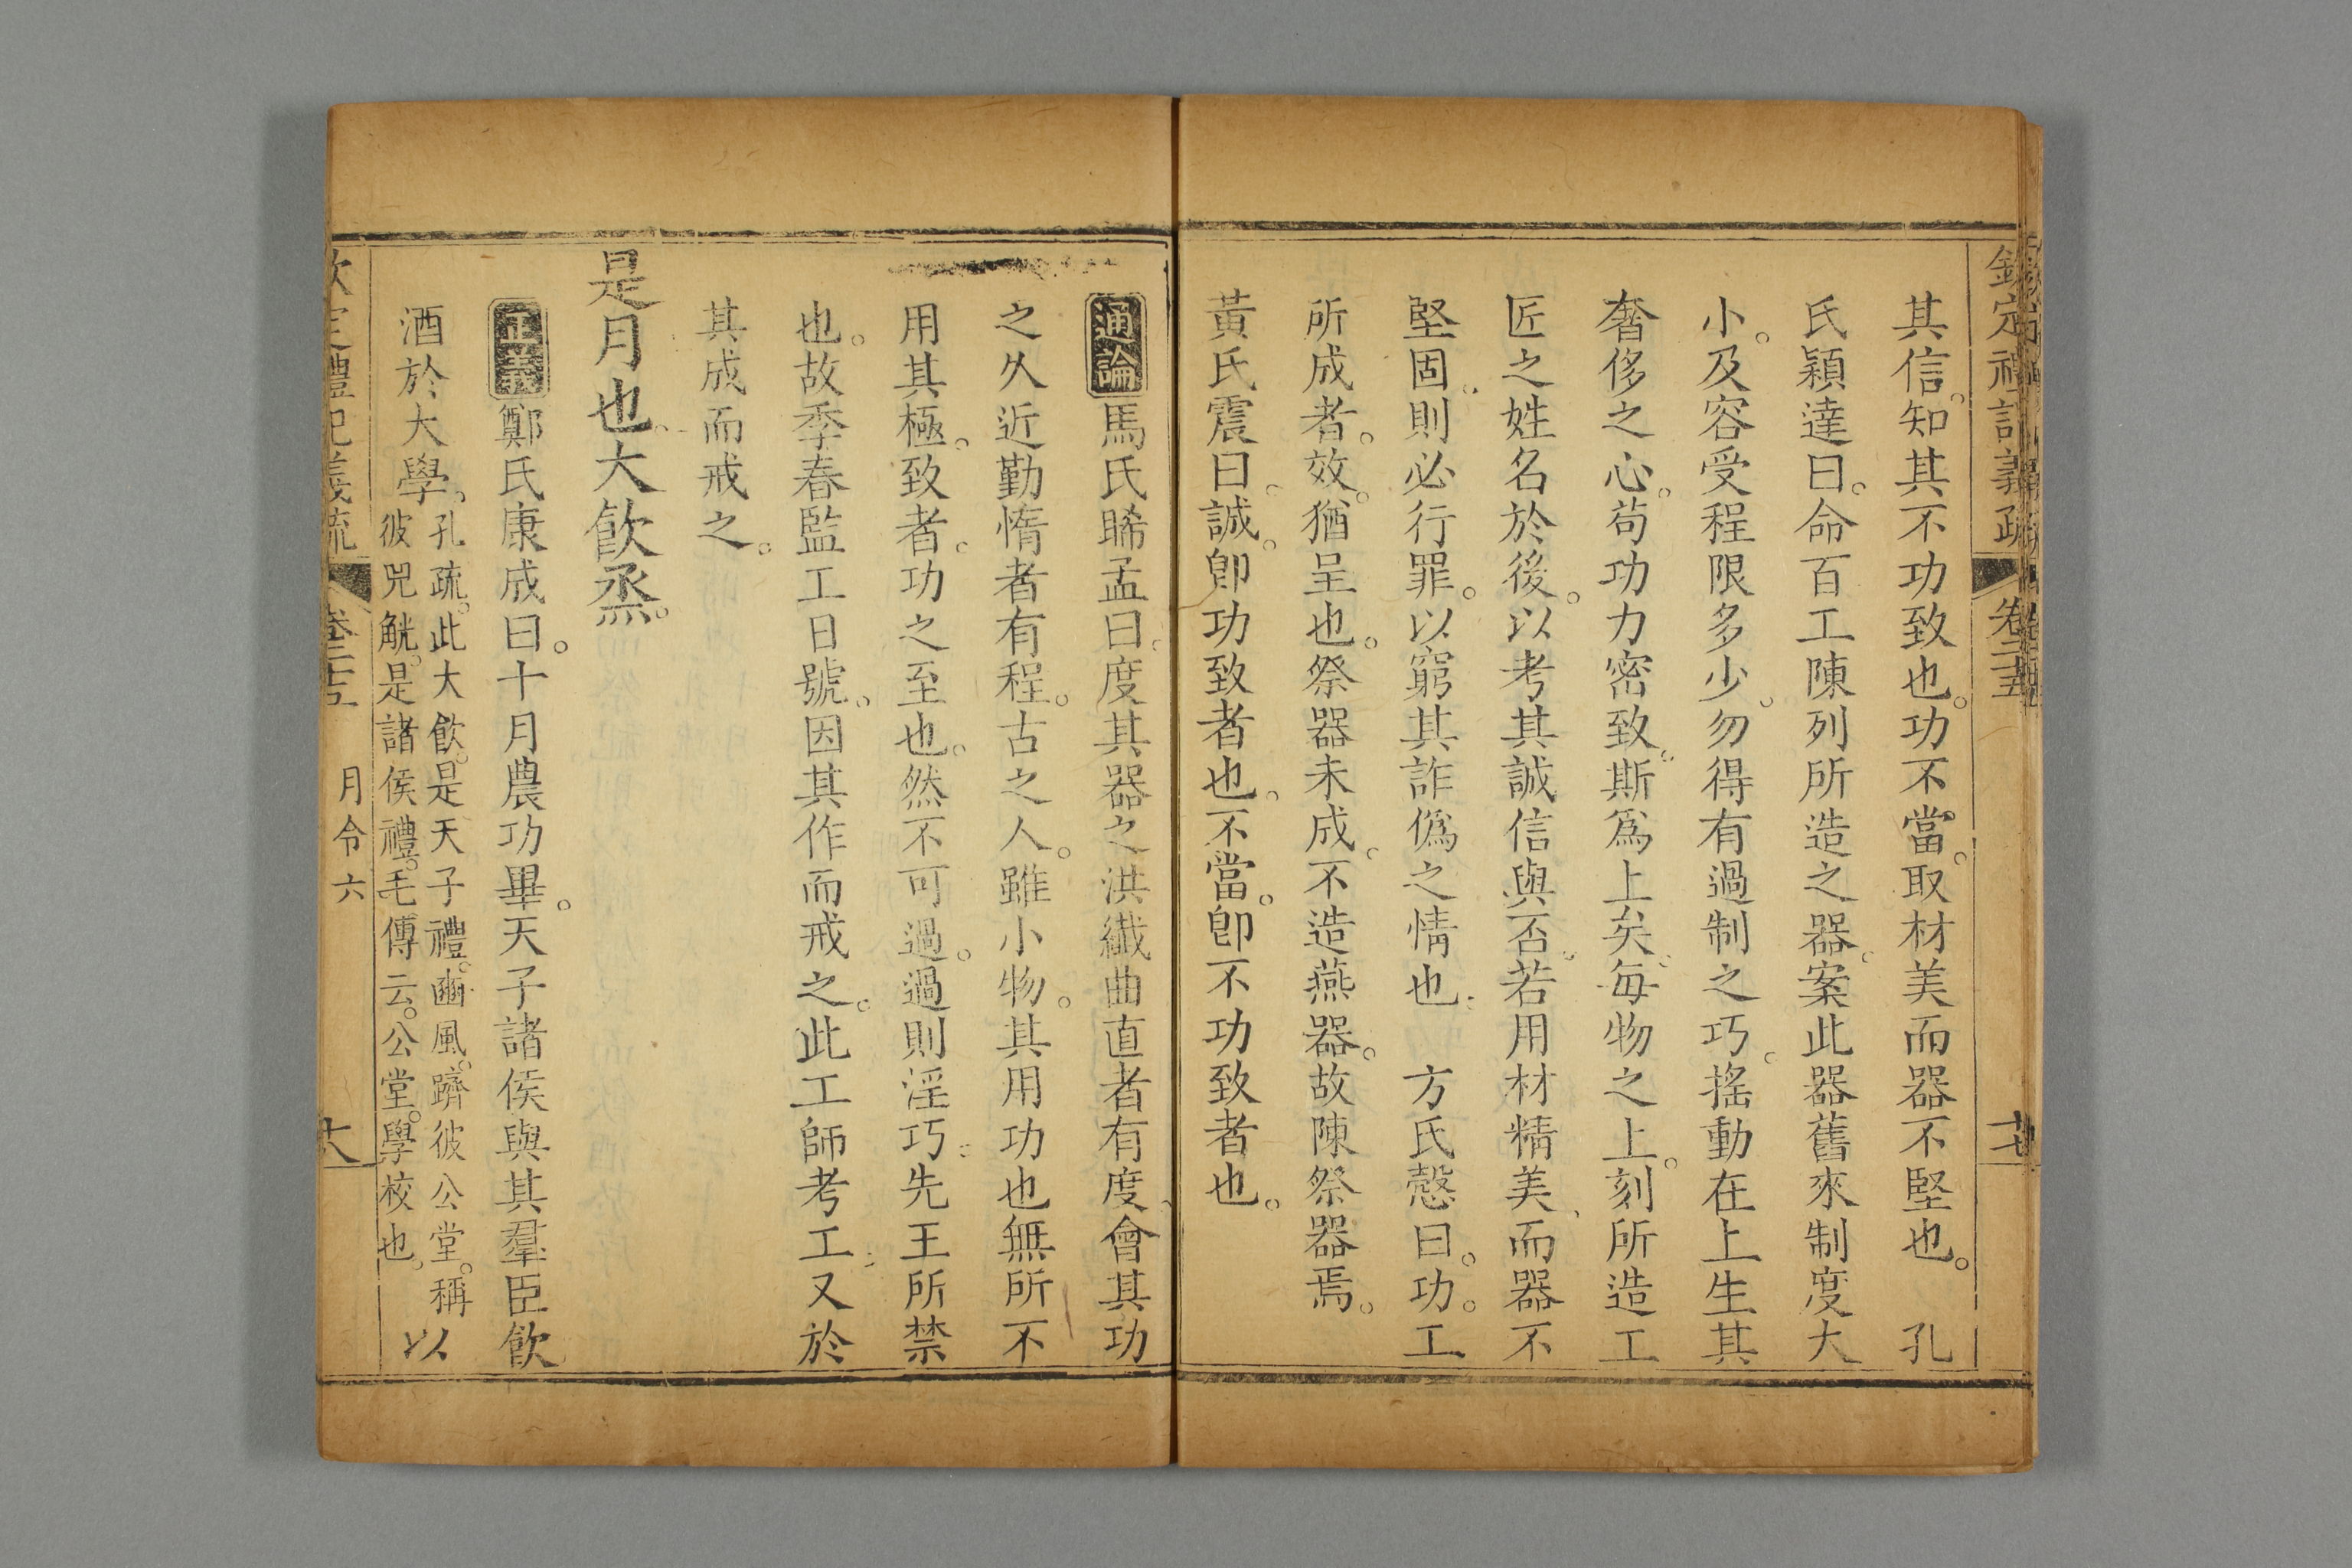 欽定禮記義疏 卷二十五
其信。知其不功致也。功不當。取材美而器不堅也。 孔
氏穎達曰。命百工陳列所造之器。案此器舊來制度大
小。及容受程限多少。勿得有過制之巧。搖動在上生其
奢侈之心。茍功力密致。斯爲上矣。每物之上。刻所造工
匠之姓名於後。以考其誠信與否。若用材精美、而器不
堅固。則必行罪。以窮其詐僞之情也。 方氏慤曰。功。工
所成者。效。猶呈也。祭器未成。不造燕器。故陳祭器焉。
黃氏震曰。誠。卽功致者也。不當。卽不功致者也。
通論 馬氏睎孟曰。度其器之洪纖曲直者有度、會其功
之久近勤惰者有程。古之人。雖小物。其用功也無所不
用其極。致者。功之至也。然不可過。過則淫巧。先王所禁
也。故季春監工日號。因其作而戒之。此工師考工。又於
其成而戒之。
是月也。大飮烝。
正義 鄭氏康成曰。十月農功畢。天子諸侯與其羣臣飮
酒於大學、孔疏。此大飮。是天子禮。豳風。躋彼公堂。稱彼兕觥。是諸侯禮。毛傳云。公堂。學校也。以
欽定禮記義疏 卷二十五 月令六